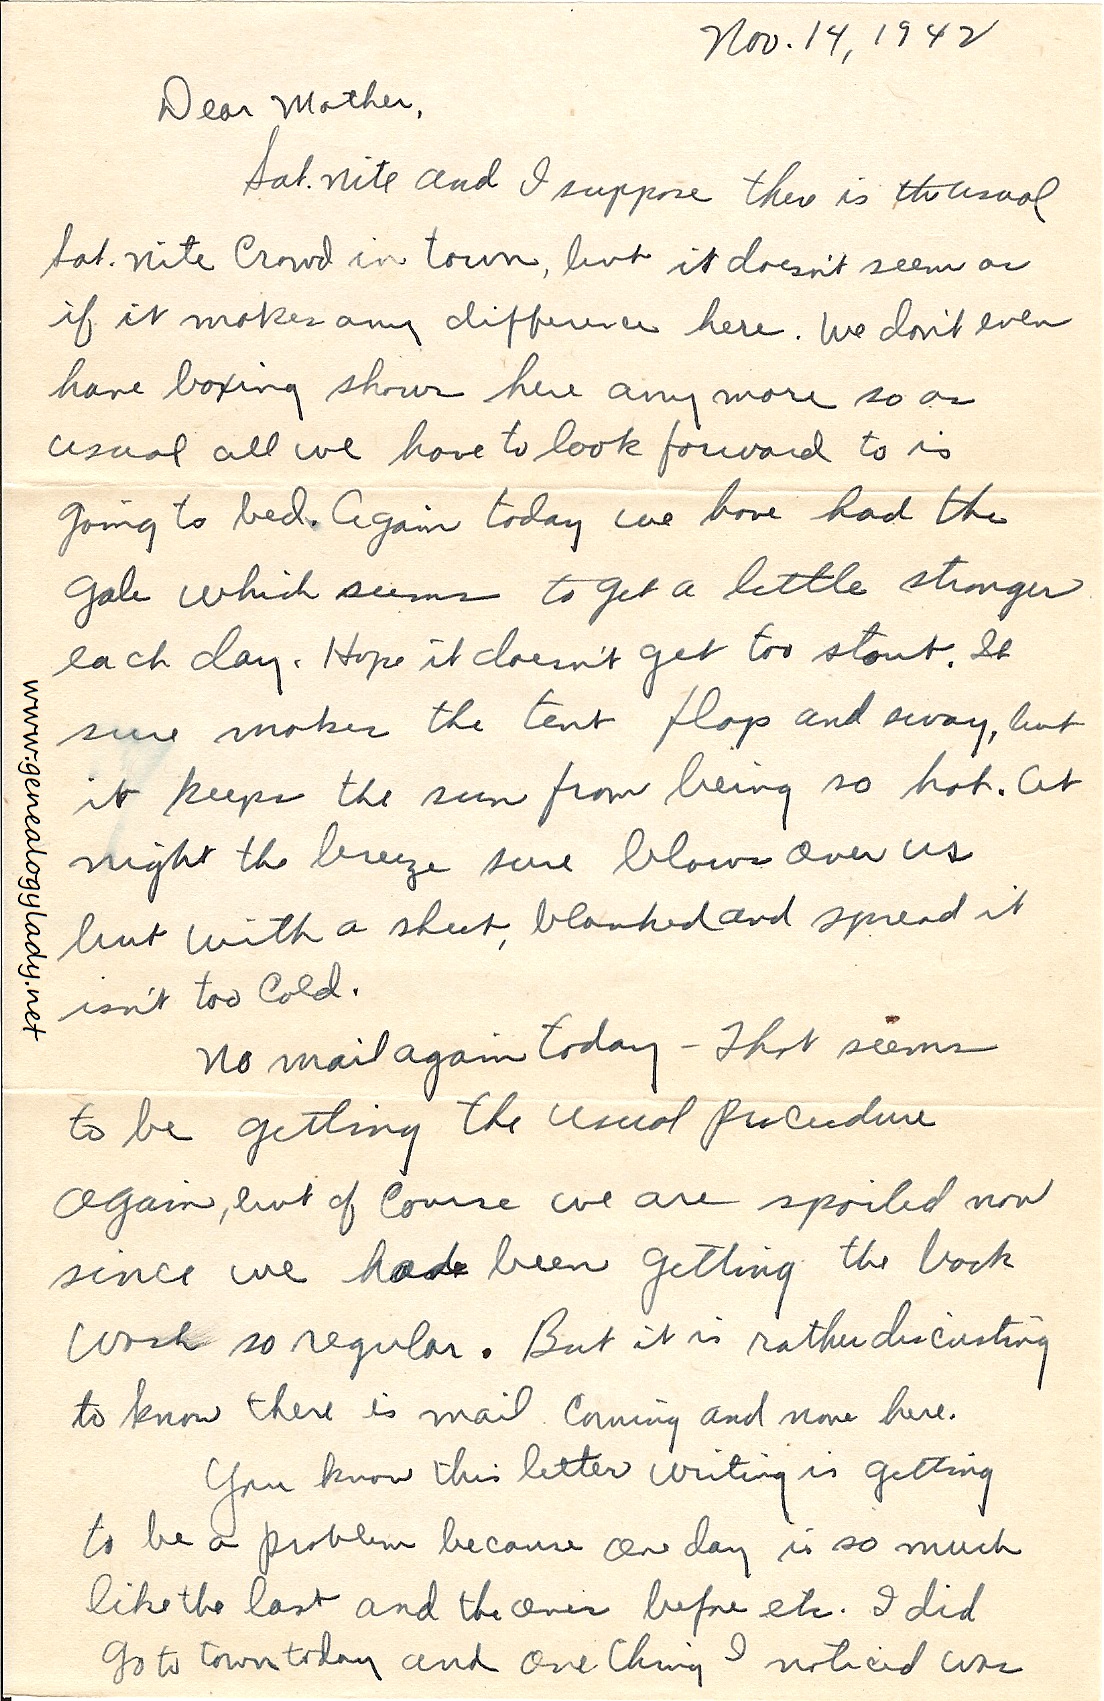 Nov. 14, 1942
Dear Mother,
Sat. nite and I suppose there is the usual
Sat. nite crowd in town, but it doesn't seem as
if it makes any difference here. We don't even
have boxing shows here any more so as
usual all we have to look forward to is
going to bed. Again today we have had the
gale which seems to get a little stronger
each day. Hope it doesn't get too stout. It
sure makes the tent flap and sway, but
it keeps the sun from being so hot. At
night the breeze sure blows over us
but with a sheet, blanked and spread it
isn't too cold.
No mail again today – That seems
to be getting the usual procedure
again, but of course we are spoiled now
since we had been getting the back
wash so regular. But it is rather discusting
to know there is mail coming and none here.
You know this letter writing is getting
to be a problem because one day is so much
like the last and the ones before etc. I did
go to town today and one thing I noticed was
www.genealogylady.net